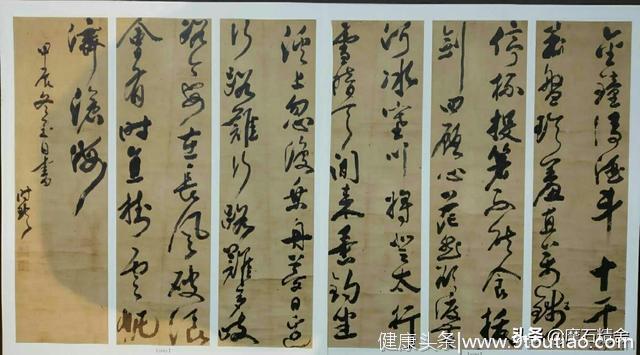 金鐏清酒斗十千
玉盤珍羞直萬錢
停杯投箸不能食拔
劍四顧心茫然欲渡
河冰塞川將登太行
雪暗天閒來垂釣坐
溪上忽復乘舟夢日邊
行路難行路難多岐
路今安在長風破浪
會有時直挂雲帆
濟滄海
甲辰冬至日書
头条 @磨石精舍
健康头条|www.9toutiao.com